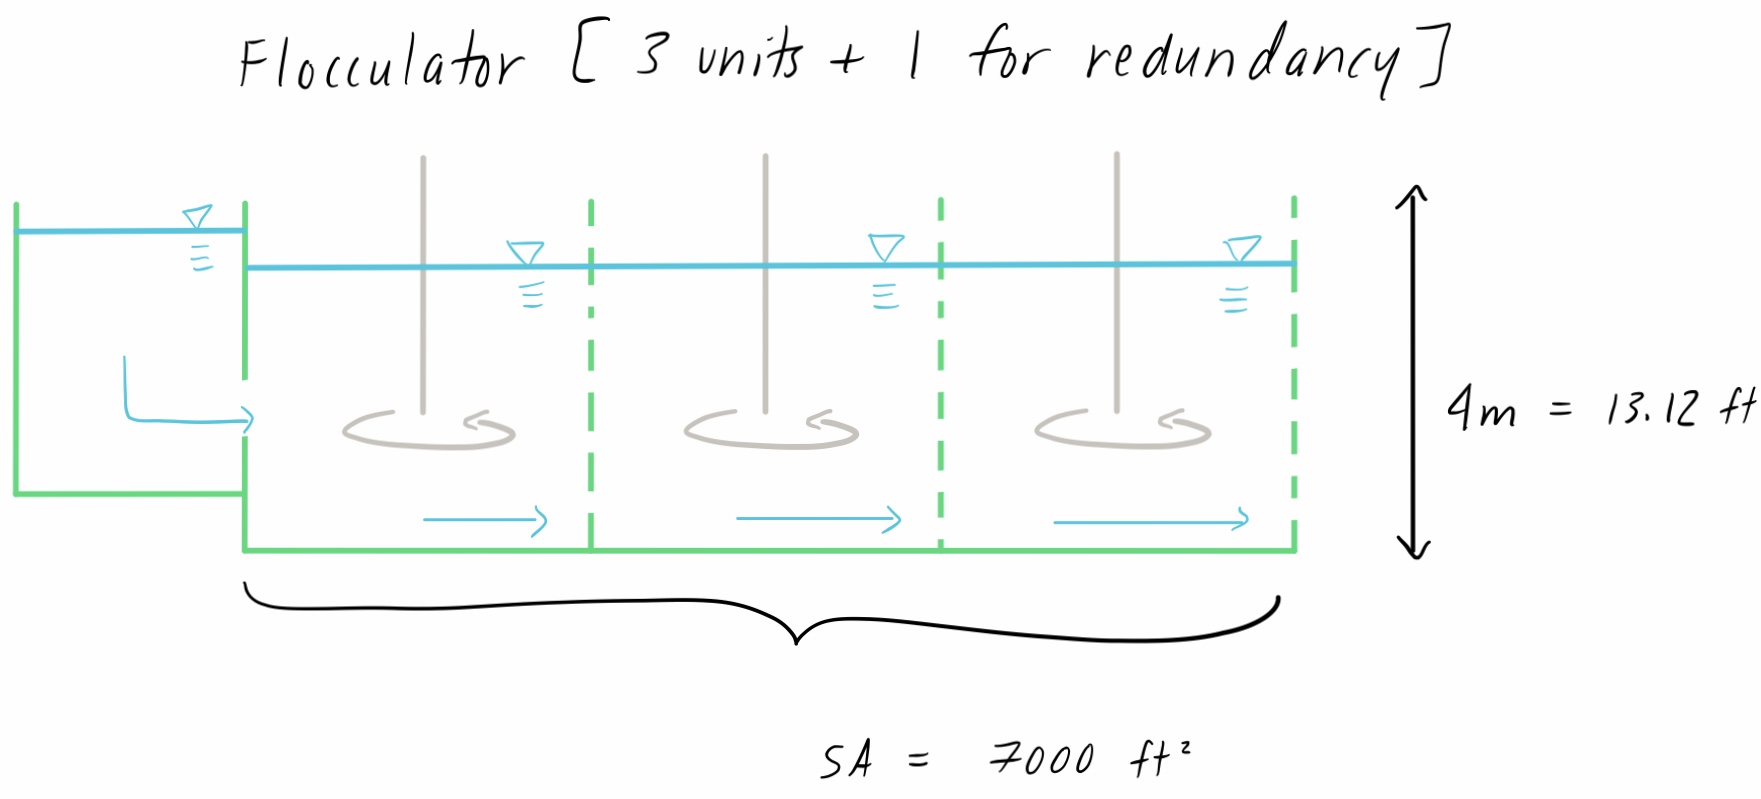 Flocculator [ 3 units + 1 for redundancy ]
4m = 13.12 ft
SA = 7000 ft²